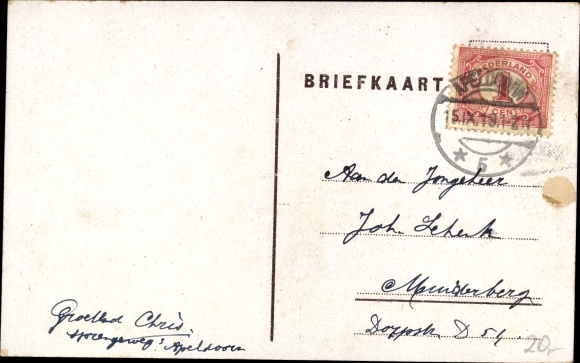 BRIEFKAART
NEDERLAND
1
CENT
15.IX.19.1-2N
★ 5 ★
Aan den Jongeheer
Joh. Schenk
Muiderberg
Dorpstr D 54
Groetend Chris,
Sprengenweg: Apeldoorn
20,-